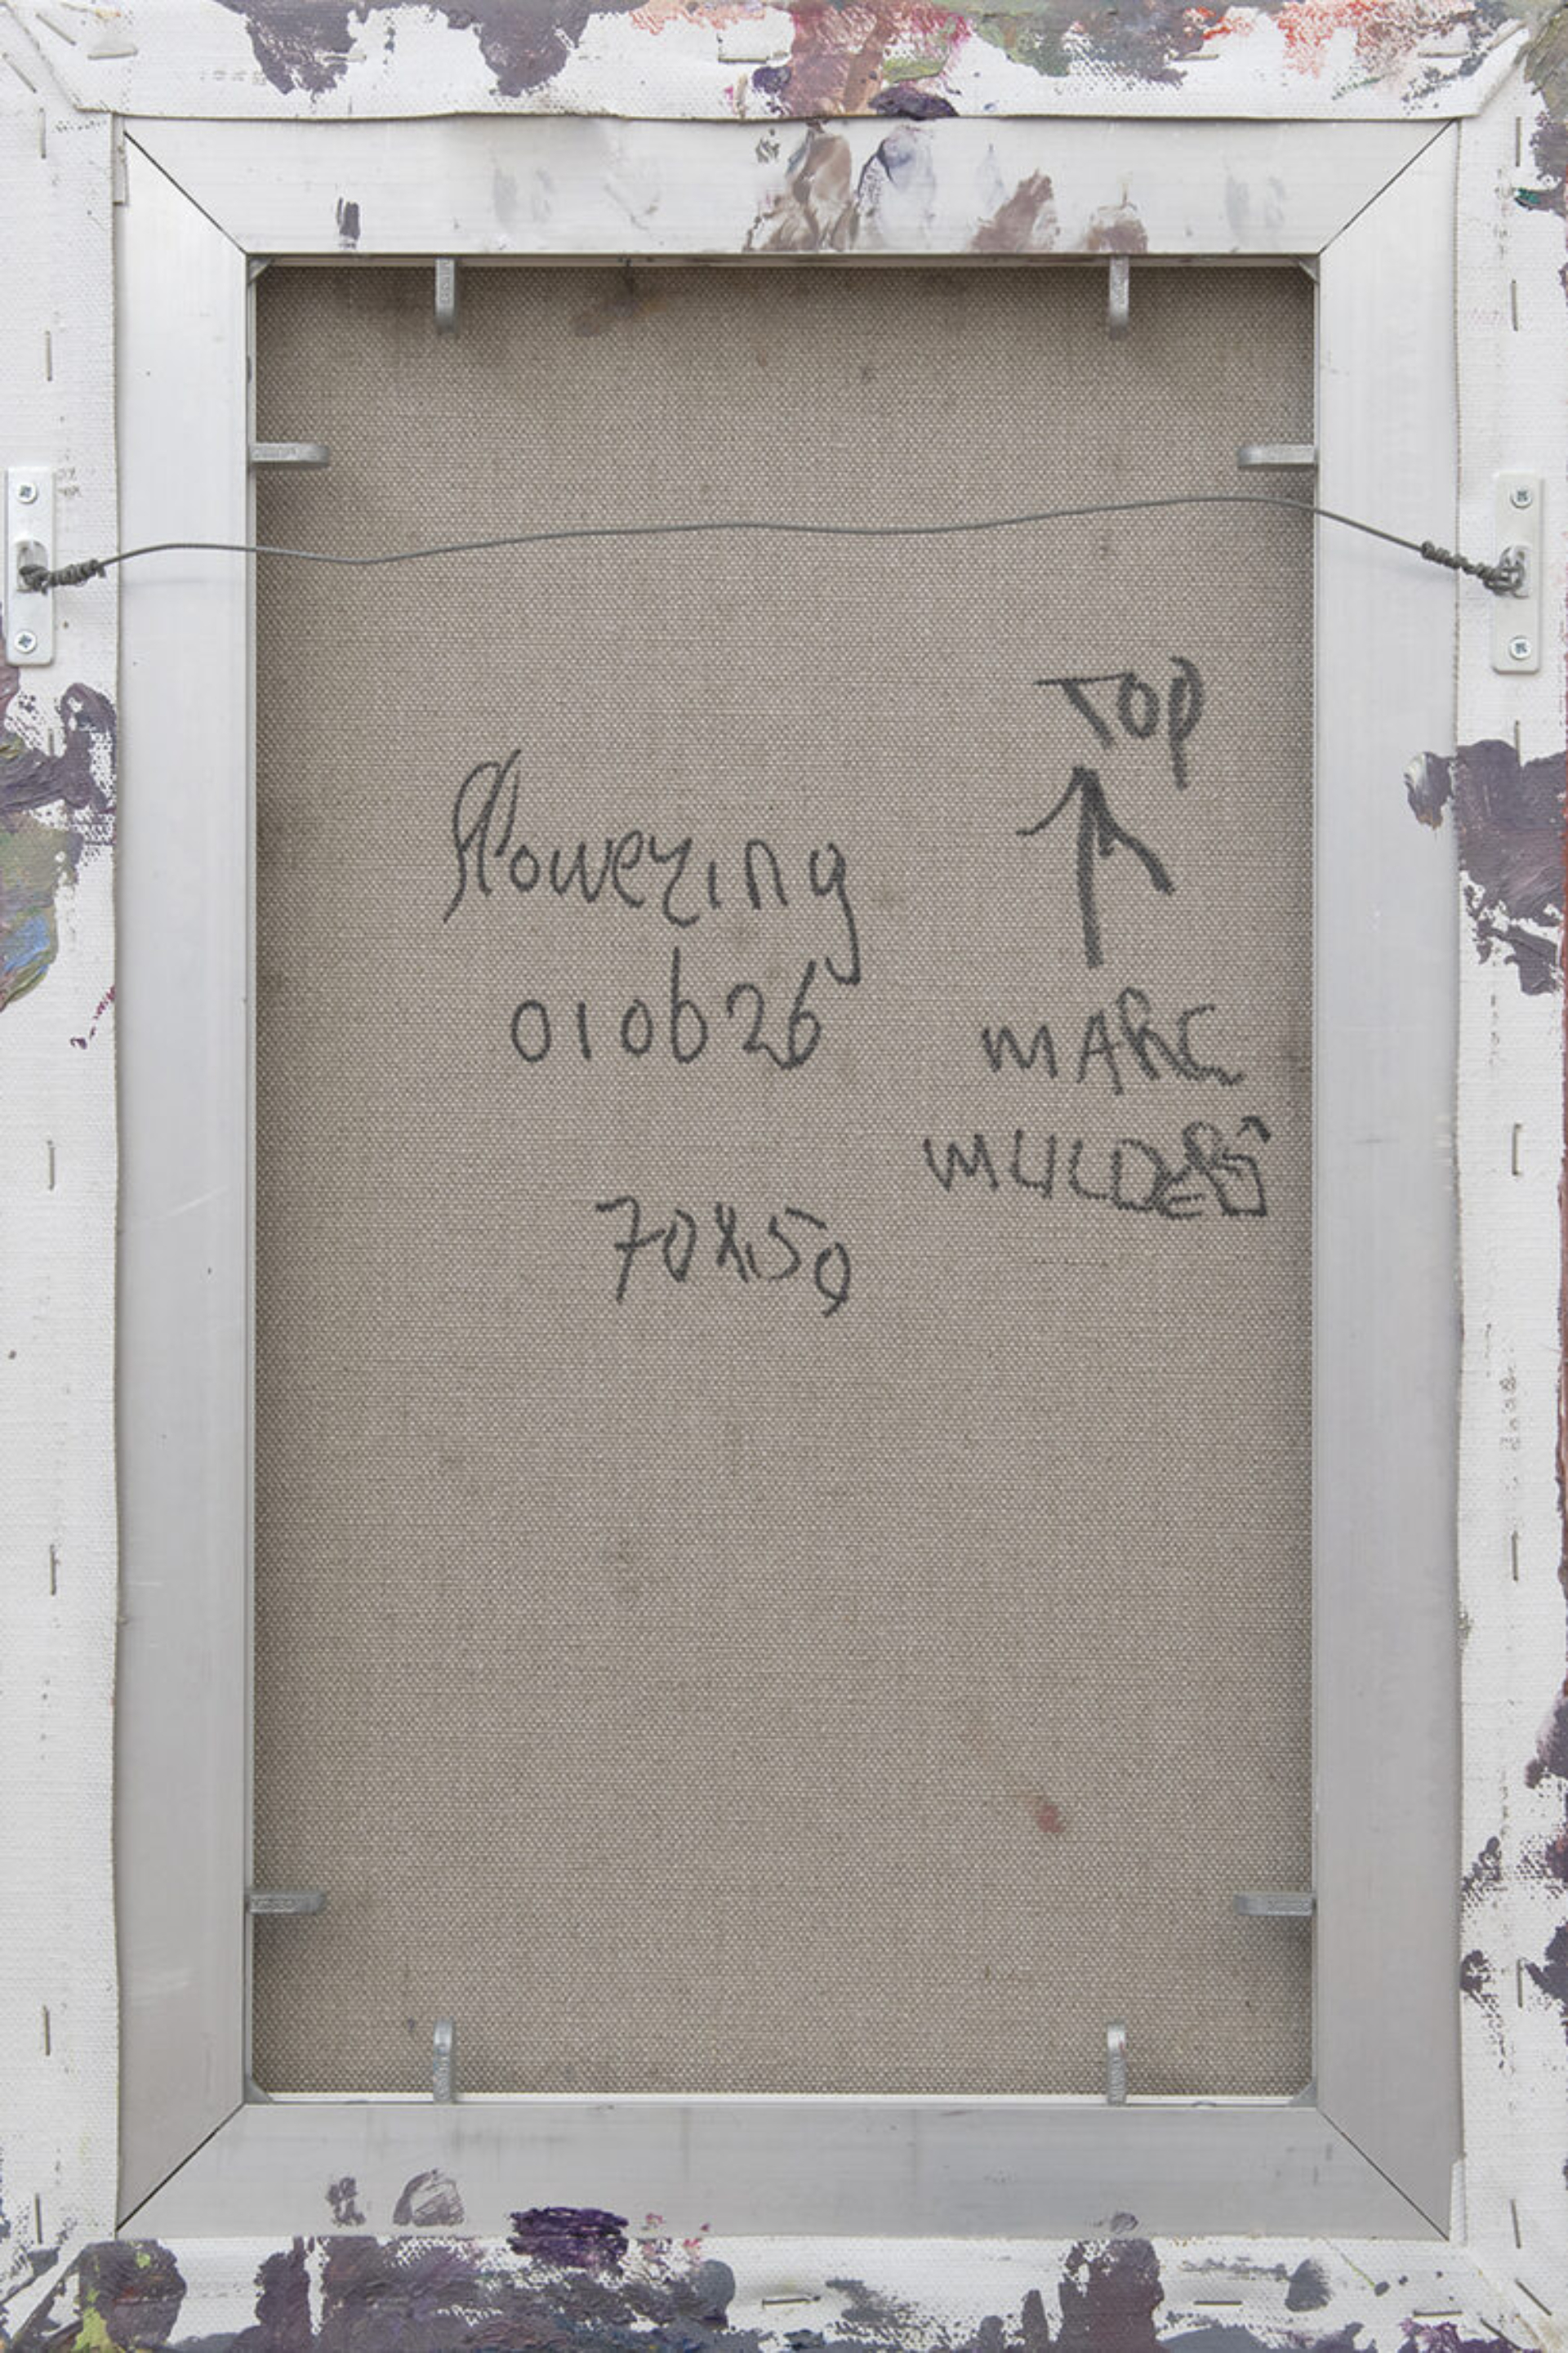 TOP
flowering
010626
MARC
MULDERS
70x50